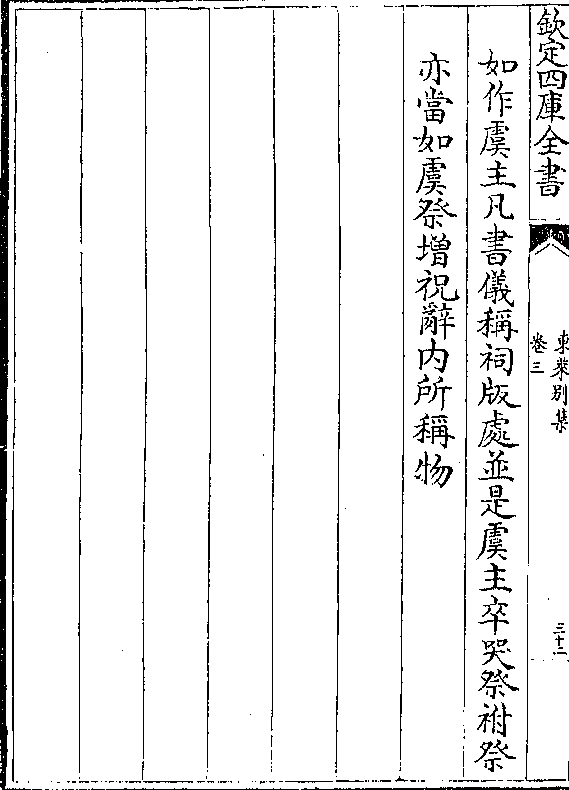 欽定四庫全書
東萊別集
卷三
三十二
如作虞主凡書儀稱祠版處並是虞主卒哭祭祔祭
亦當如虞祭增祝辭内所稱物